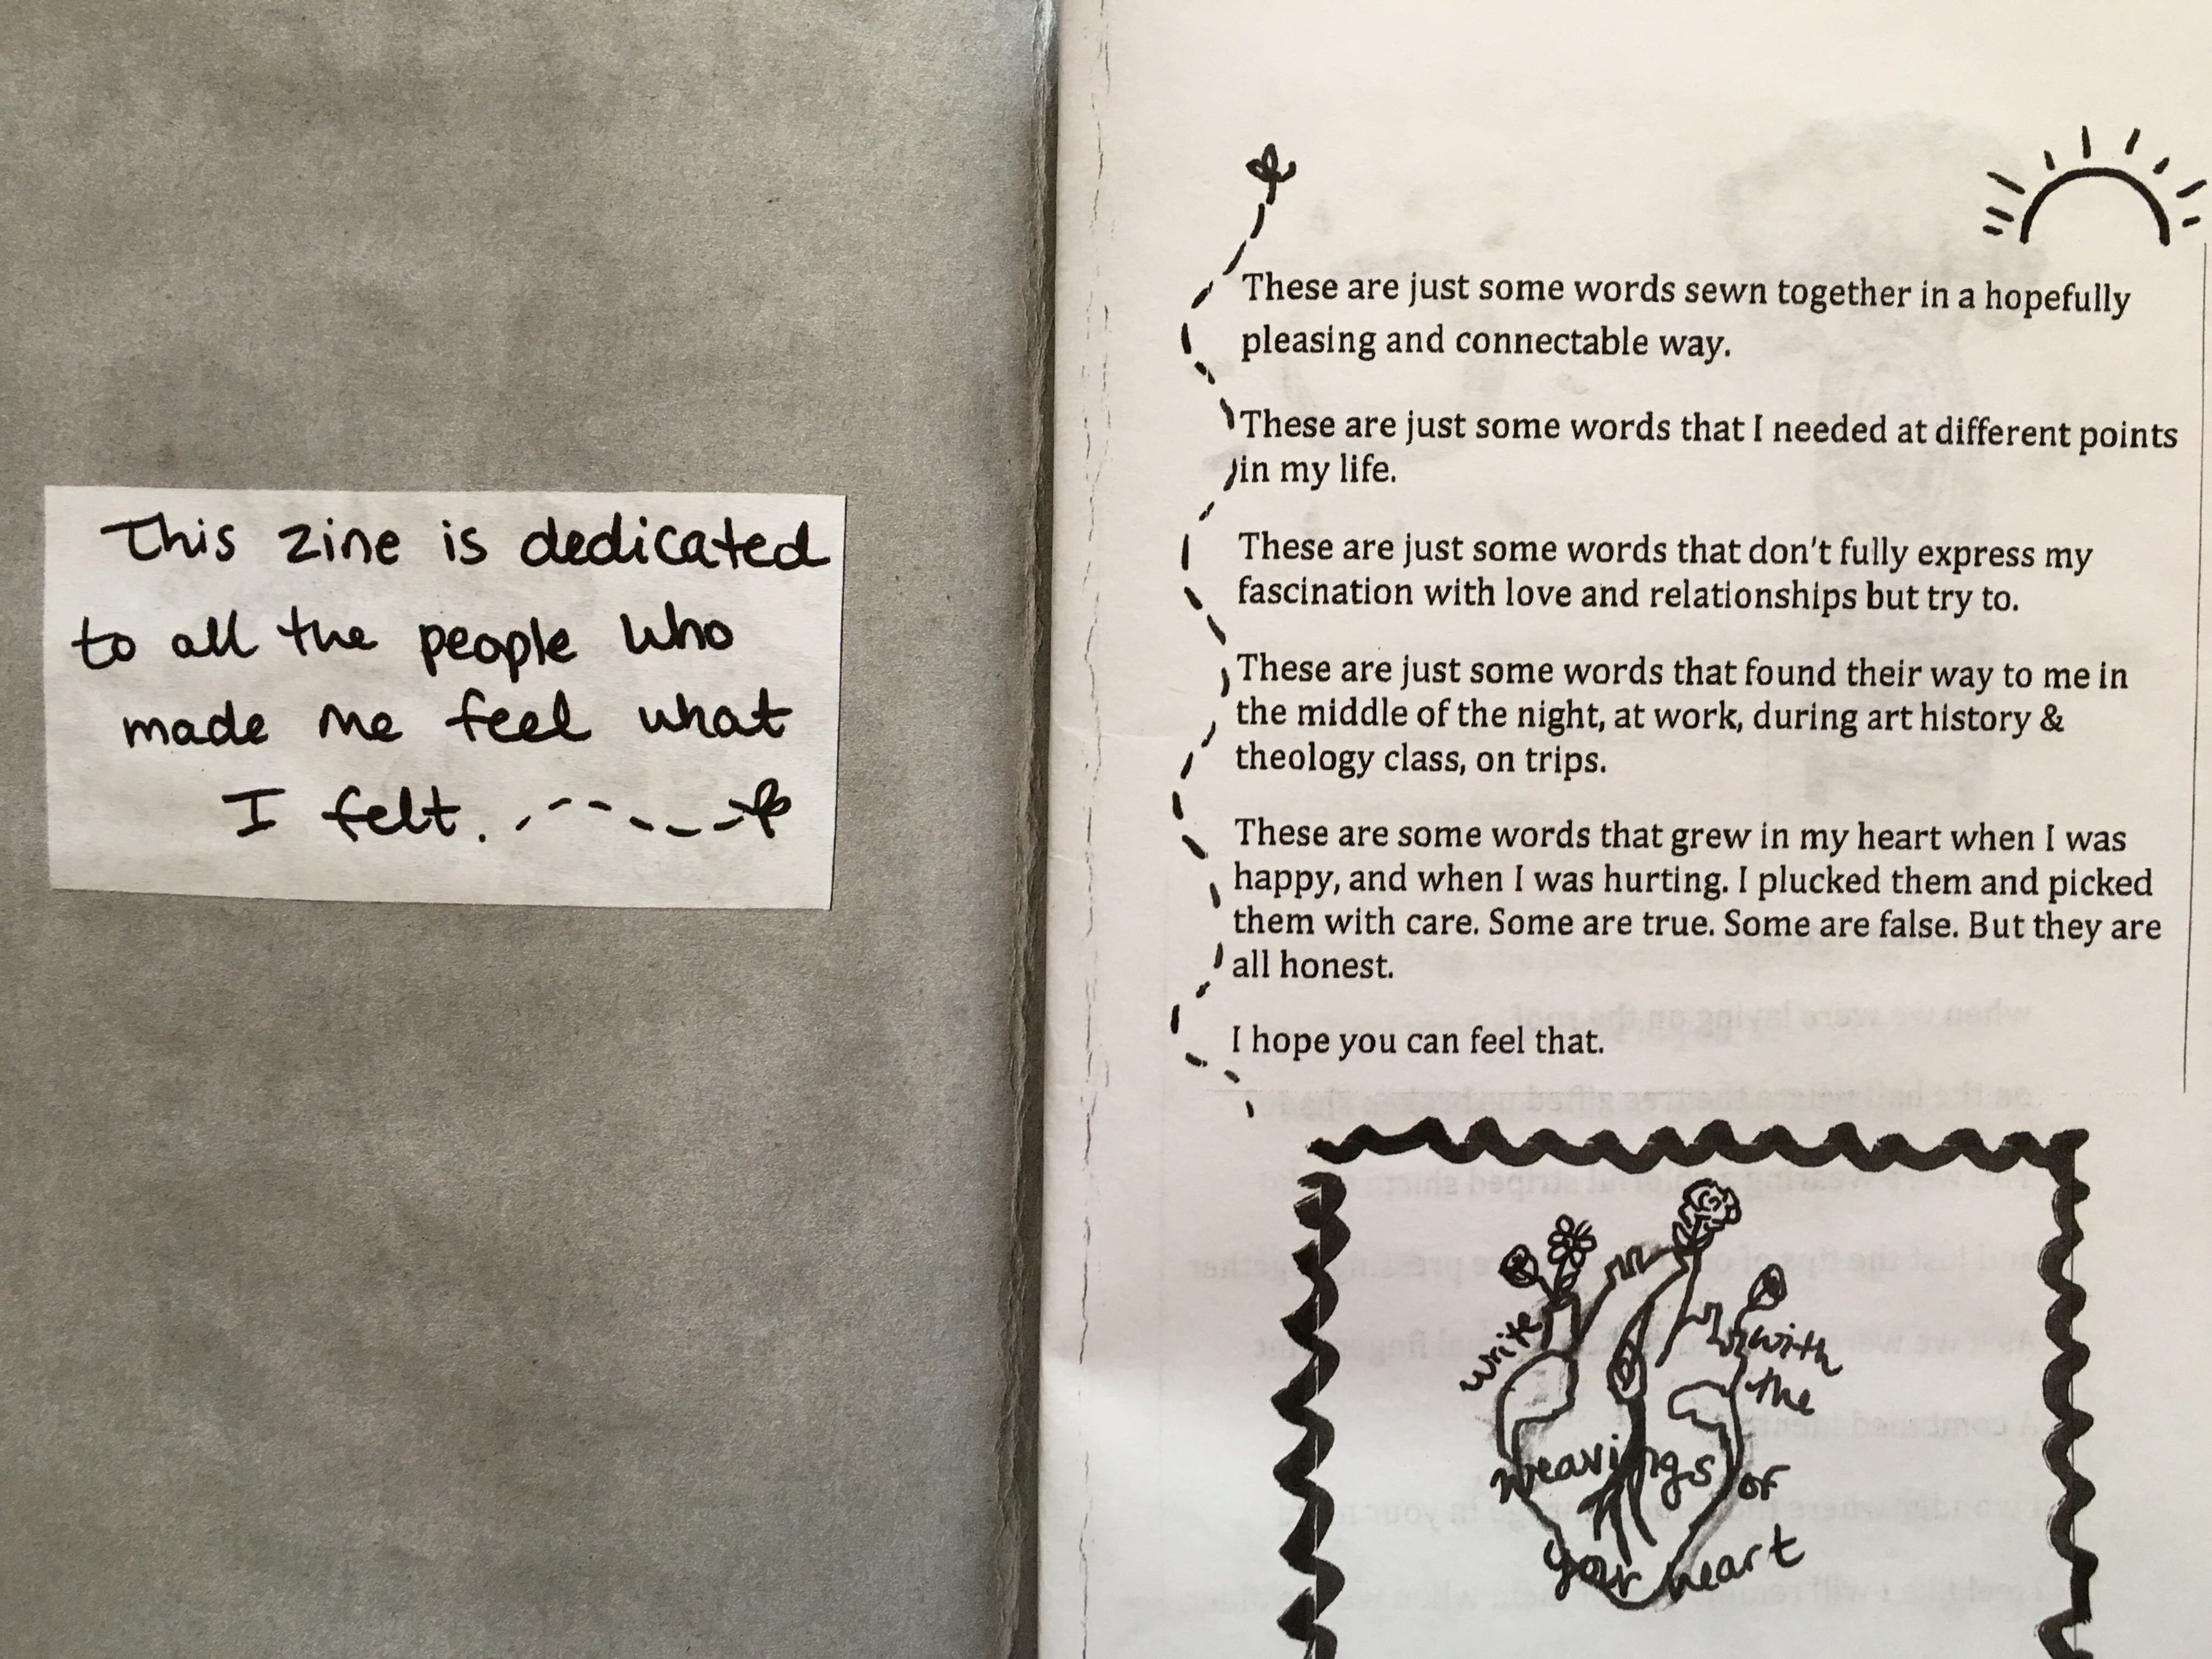 This zine is dedicated
to all the people who
made me feel what
I felt.
These are just some words sewn together in a hopefully
pleasing and connectable way.
These are just some words that I needed at different points
in my life.
These are just some words that don't fully express my
fascination with love and relationships but try to.
These are just some words that found their way to me in
the middle of the night, at work, during art history &
theology class, on trips.
These are some words that grew in my heart when I was
happy, and when I was hurting. I plucked them and picked
them with care. Some are true. Some are false. But they are
all honest.
I hope you can feel that.
write
with
the
weavings of
your heart